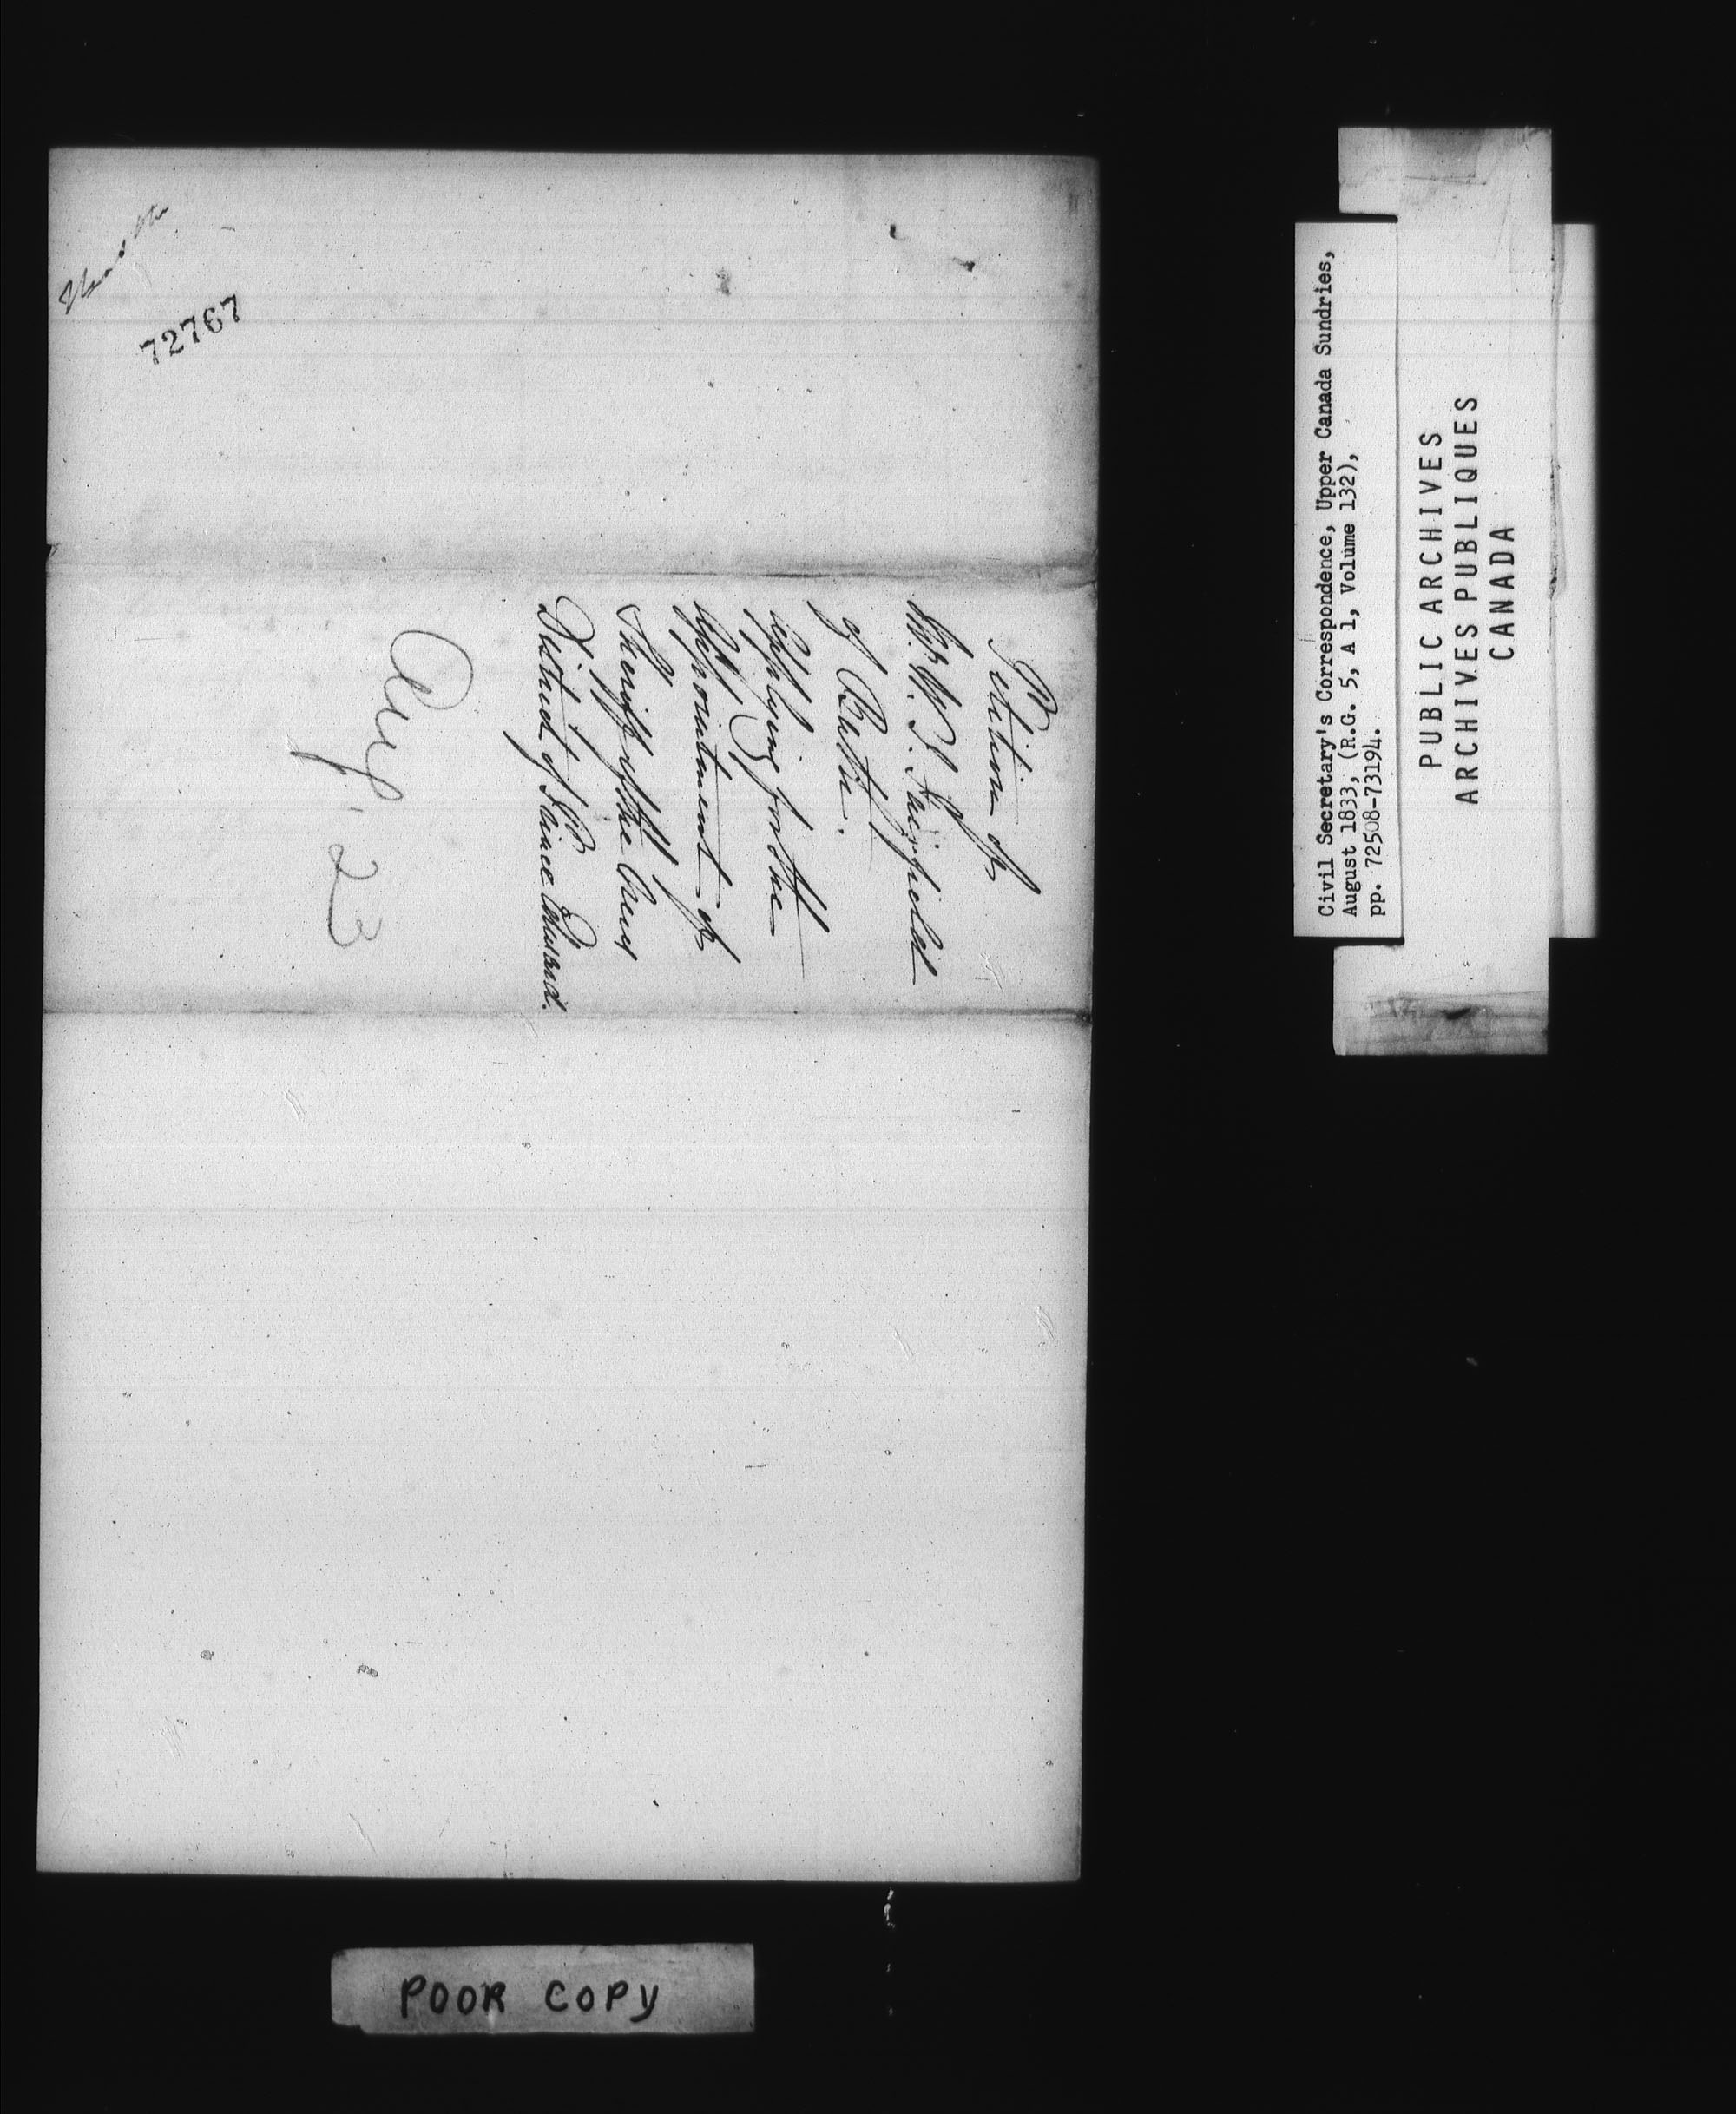 72767
Petition of
W. J. Fairfield
of Bath.
applying for the
Appointment of
Sheriff of the new
District of Prince Edward.
Aug. 23
Civil Secretary's Correspondence, Upper Canada Sundries,
August 1833, (R.G. 5, A 1, Volume 132),
pp. 72508-73194.
PUBLIC ARCHIVES
ARCHIVES PUBLIQUES
CANADA
POOR COPY